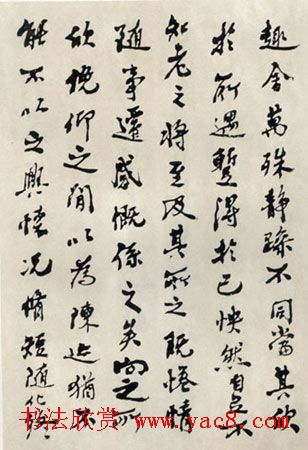 趣舍萬殊静躁不同當其欣
於所遇暫得於己怏然自足不
知老之將至及其所之既惓情
隨事遷感慨係之矣向之所
欣俛仰之間以為陳迹猶不
能不以之興懷况脩短隨化終
书法欣赏 www.yac8.com